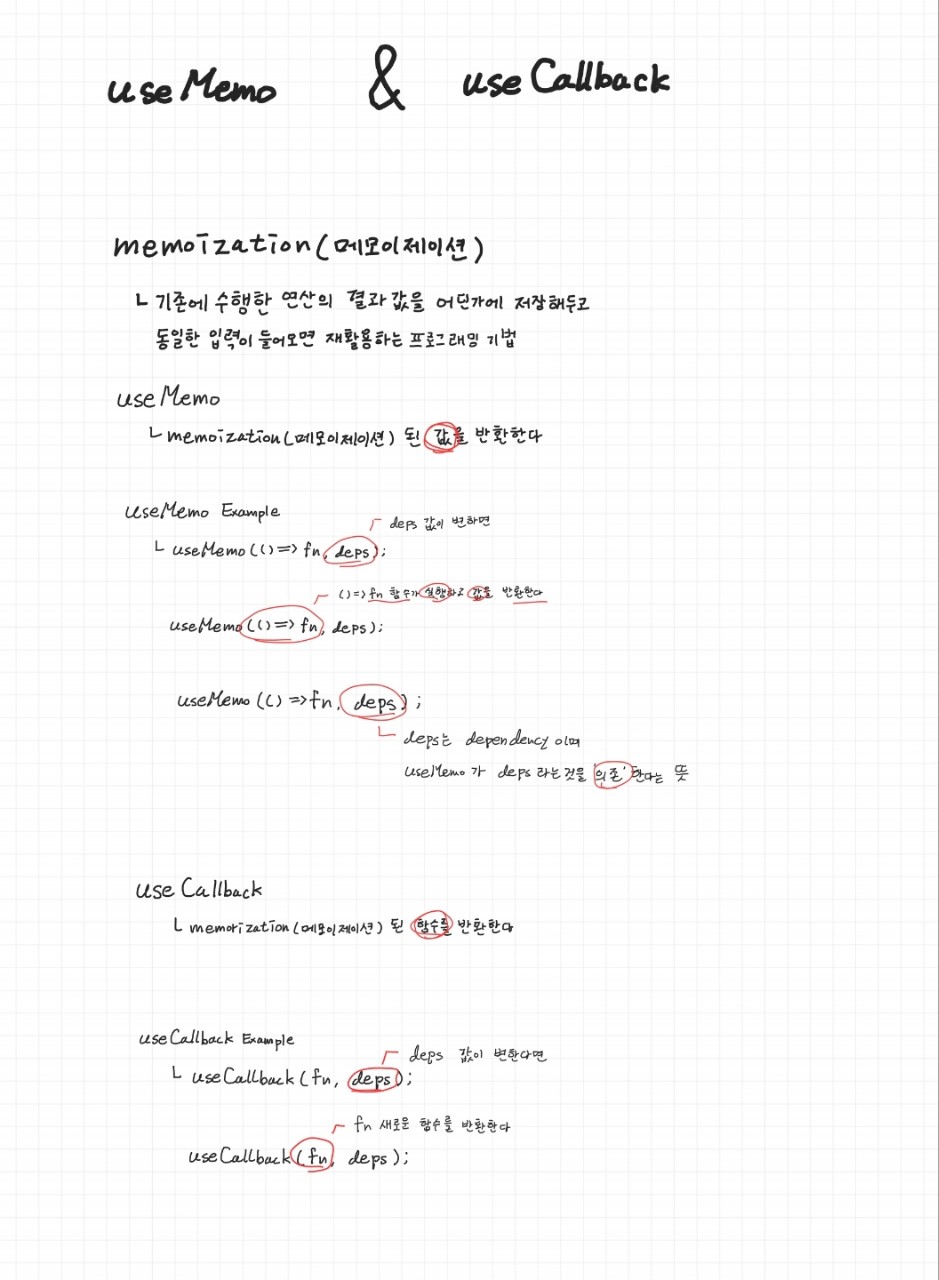 useMemo & useCallback
memoization(메모이제이션)
ㄴ 기존에 수행한 연산의 결과값을 어딘가에 저장해두고
동일한 입력이 들어오면 재활용하는 프로그래밍 기법
useMemo
ㄴ memoization(메모이제이션) 된 값을 반환한다
useMemo Example
deps 값이 변하면
ㄴ useMemo(()=> fn, deps);
()=> fn 함수가 실행하고 값을 반환한다
useMemo(()=> fn, deps);
useMemo(()=>fn, deps);
deps는 dependency 이며
useMemo가 deps 라는것을 '의존' 한다는 뜻
useCallback
ㄴ memorization(메모이제이션) 된 함수를 반환한다
useCallback Example
deps 값이 변한다면
ㄴ useCallback(fn, deps);
fn 새로운 함수를 반환한다
useCallback(fn, deps);